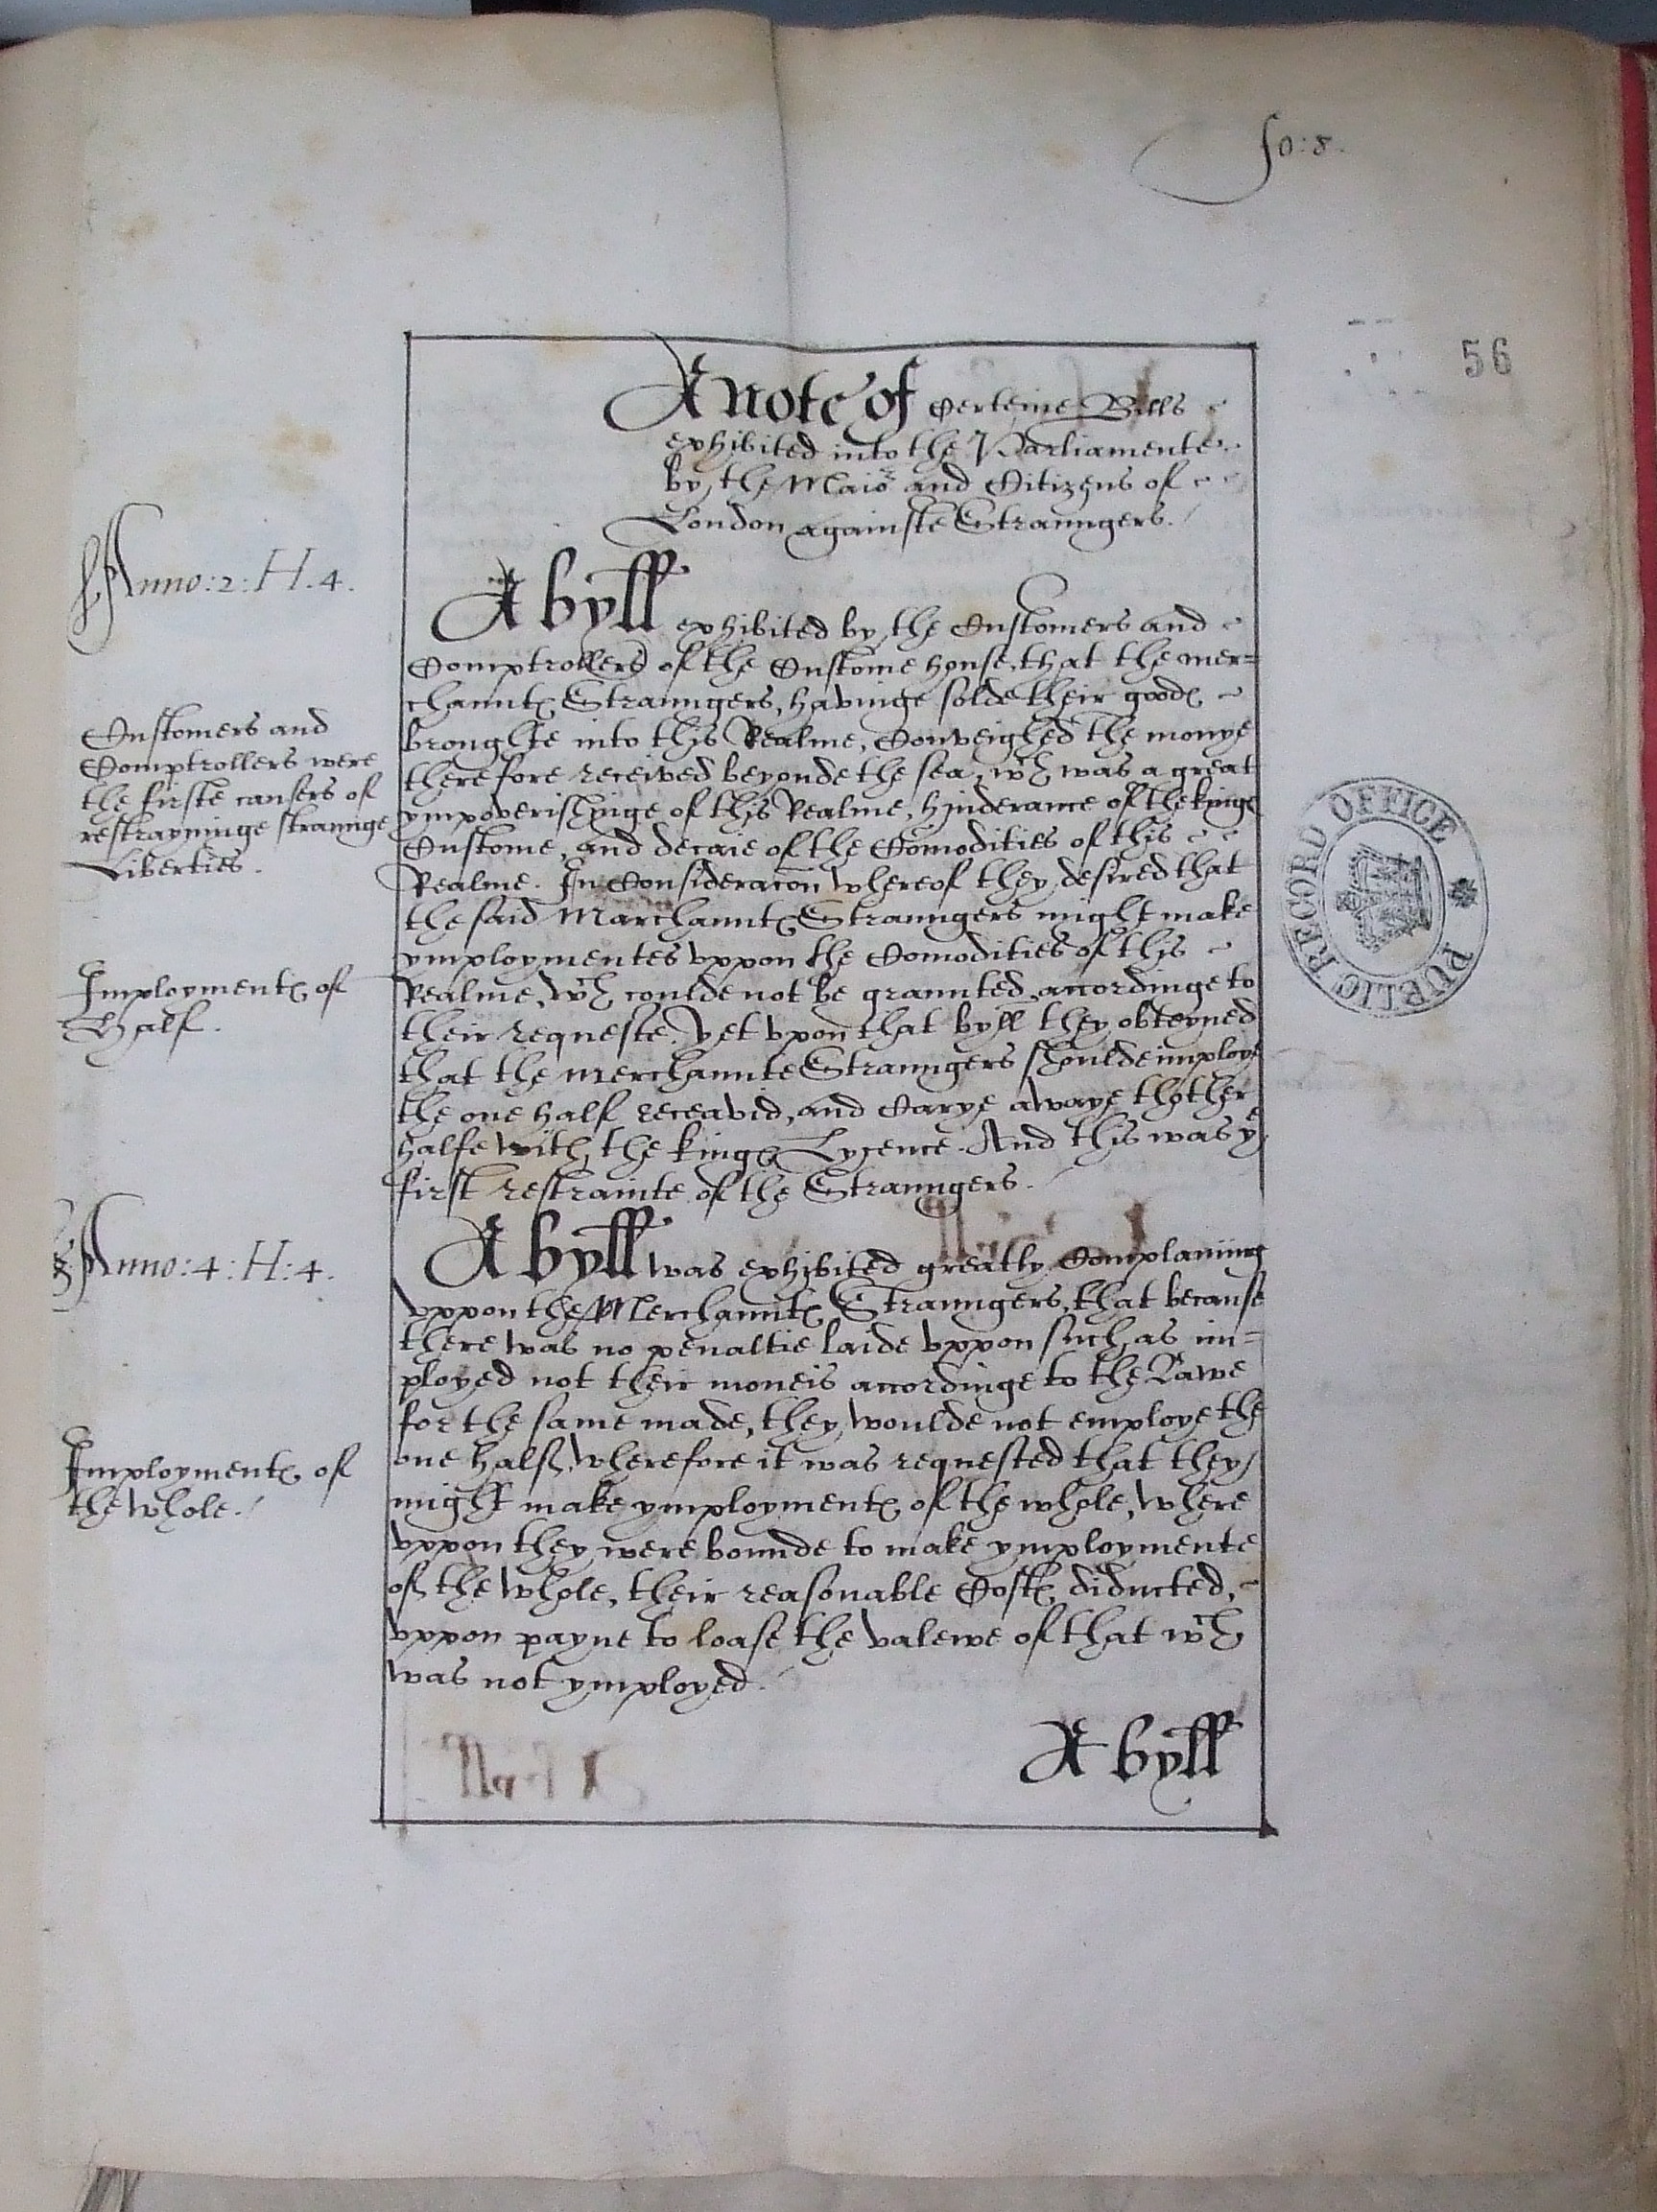 fo: 8.
56
A note of Certeine Bills
exhibited into the Parliamente
by the Maior and Citizens of
London againste Straungers.
Anno: 2: H. 4.
A byll exhibited by the Customers and
Comptrollers of the Custome house, that the mer=
chauntes Straungers, havinge solde their goodes
broughte into this Realme, Conveighed the monye
therefore received beyonde the sea, wch was a great
ympoverishinge of this Realme, hinderance of the kinges
Custome, and decaie of the Comodities of this
Realme. In Consideracon whereof they desired that
the said Marchauntes Straungers might make
ymploymentes uppon the Comodities of this
Realme, wch coulde not be graunted accordinge to
their requeste. Yet upon that byll they obteyned
that the merchaunte Straungers shoulde imploye
the one half receavid, and Carye awaye thother
halfe with the kinges Lycence. And this was ye
first restrainte of the Straungers.
Customers and
Comptrollers were
the firste causers of
restrayninge straunge
Liberties.
Imploymentes of
Half.
Anno: 4: H: 4.
A byll was exhibited greatly Complaninge
uppon the Merchauntes Straungers, that because
there was no penaltie laide uppon such as im=
ployed not their moneis accordinge to the Lawe
for the same made, they woulde not employe the
one half, wherefore it was requested that they
might make ymploymentes of the whole, where
uppon they were bounde to make ymploymente
of the whole, their reasonable Costes diducted,
uppon payne to loase the valewe of that wch
was not ymployed.
Imploymentes of
the whole.
A byll
PUBLIC RECORD OFFICE